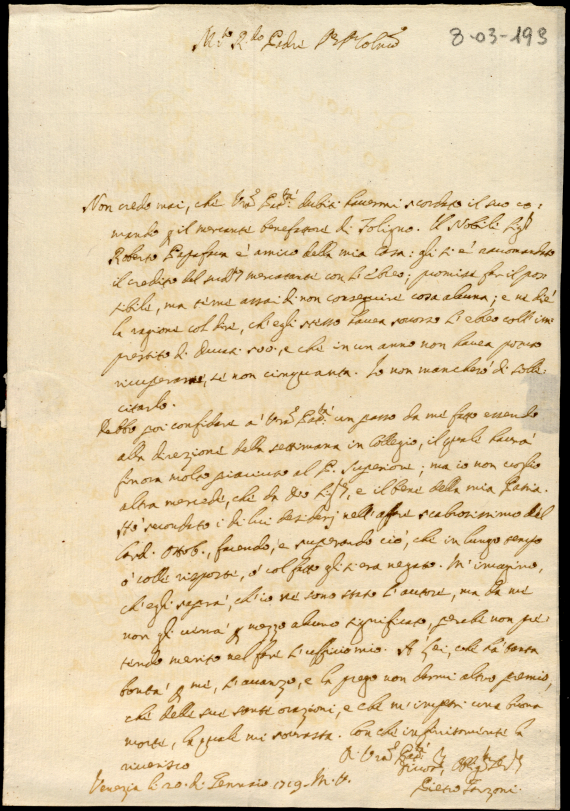 M.to R.do Padre
8-03-193
Non credo mai, che Vra Pad.tà dubiti havermi scordato il suo co:
mando p il mercante benefattore di Foligno. Il Nobile Sig.r
Roberto Papafava è amico della mia Casa: gli si è raccomandato
il credito del sud.o mercatante con l'ebreo; promise far il pos:
sibile, ma teme assai di non conseguire cosa alcuna; e ne diè
la ragione col dire, ch'egli stesso havea scorso l'ebreo coll' im:
prestito di Ducati 500, e che in un anno non havea potuto
ricuperarne, se non cinquanta. Io non mancherò di solle:
citarlo.
Debbo poi confidare a' Vra Pad.tà un passo da me fatto essendo
alla direzione della settimana in Collegio, il quale haurà
finora molto piacciuto al P. Superiore; ma io non voglio
altra mercede, che da Dio Sig.r, e il bene della mia Patria.
Hò secondato i di lui desiderj nell'affare scabrosissimo del
Card. Ottob., facendo, e superando ciò, che in lungo tempo
ò colle risposte, ò col fatto gli si era negato. M'imagino,
ch'egli saprà, ch'io ne sono stato l'autore, ma da me
non gli verrà p mezzo alcuno significato, perche non pre:
tendo merito nel fare l'ufficio mio. A Lei, che hà tanta
bontà p me, l'avanzo, e la prego non darmi altro premio,
che delle sue sante orazioni, e che m'impetri una buona
morte, la quale mi sovrasta. Con che infinitamente la
riverisco
Di Vra Pad.tà
Venezia li 20. di Gennaio 1719. M.V.
Pietro Garzoni